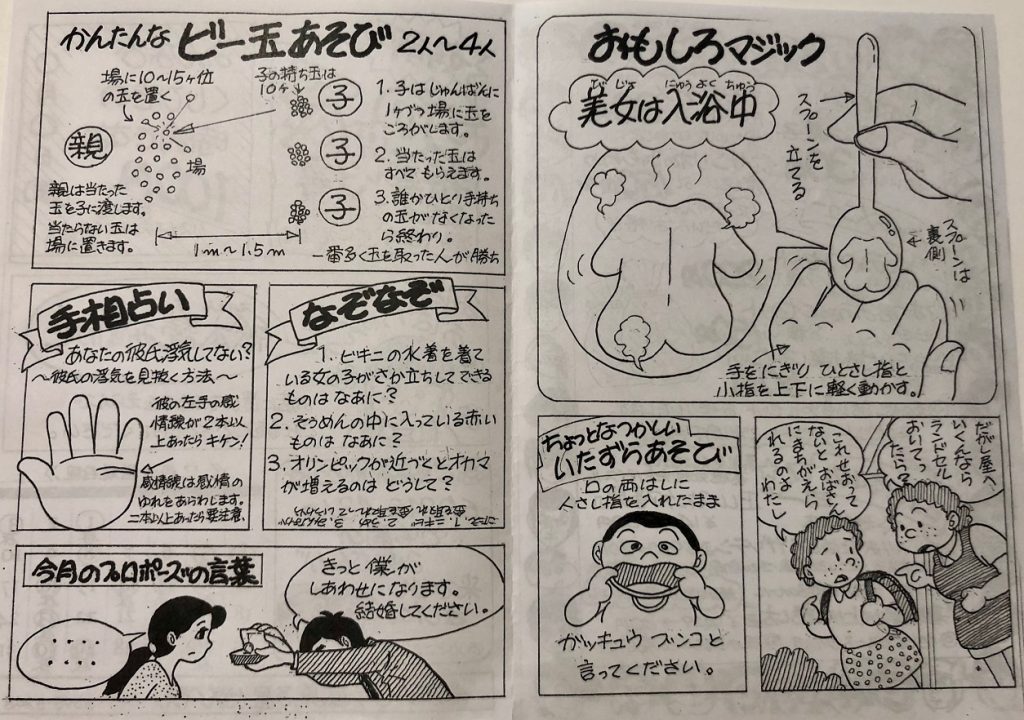 かんたんな ビー玉あそび 2人〜4人
場に10〜15ヶ位
の玉を置く
子の持ち玉は
10ヶ
親
場
子
子
子
親は当たった
玉を子に渡します。
当たらない玉は
場に置きます。
1m〜1.5m
1. 子はじゅんばんに
1ヶづつ場に玉を
ころがします。
2. 当たった玉は
すべてもらえます。
3. 誰かひとり手持ち
の玉がなくなった
ら終わり。
一番多く玉を取った人が勝ち
手相占い
あなたの彼氏浮気してない?
〜彼氏の浮気を見抜く方法〜
彼の左手の感
情線が2本以
上あったらキケン!
感情線は感情の
ゆれをあらわします。
二本以上あったら要注意。
なぞなぞ
1. ビキニの水着を着て
いる女の子がさか立ちしてできる
ものはなあに?
2. そうめんの中に入っている赤い
ものはなあに?
3. オリンピックが近づくとオカマ
が増えるのは どうして?
今月のプロポーズの言葉
・・・・
・・・・
きっと僕が
しあわせになります。
結婚してください。
おもしろマジック
びじょ にゅうよくちゅう
美女は入浴中
スプーンを
立てる
スプーンは
裏側
手をにぎり ひとさし指と
小指を上下に軽く動かす。
ちょっとなつかしい
いたずらあそび
口の両はしに
人さし指を入れたまま
ガッキュウ ブンコと
言ってください。
だがし屋へ
いくんなら
ランドセル
おいてっ
たら?
これせおって
ないとおばさん
にまちがえら
れるのよ
わたし